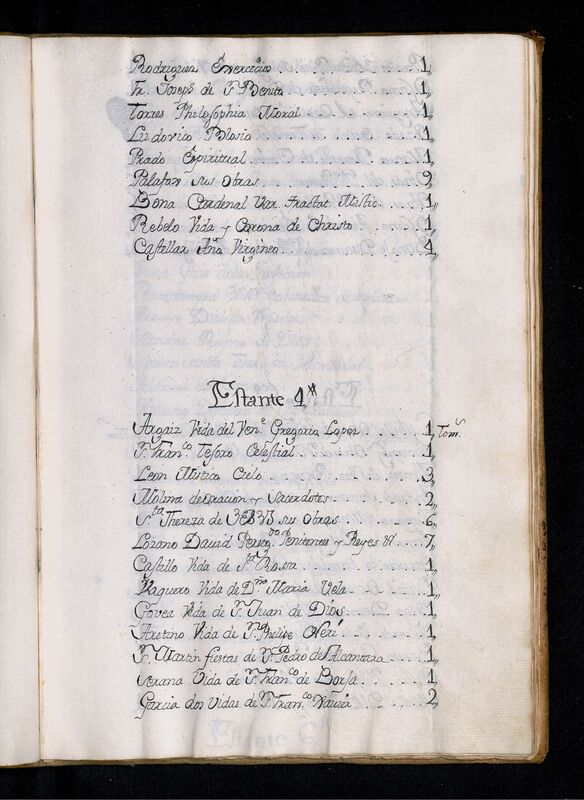 Rodriguez Exercicio . . . . . . . . . 1,,
Fr. Joseph de S. Benito . . . . . . . 1,,
Torres Philosophia Moral . . . . . . 1,,
Ludovico Blosio . . . . . . . . . . . 1,,
Prado Espiritual . . . . . . . . . . . 1,,
Palafox sus Obras . . . . . . . . . . 9,,
Bona Cardenal Var. tractat Mistic . . . 1,,
Rebelo Vida y Corona de Christo . . . 1,,
Castellar Año Virgineo . . . . . . . . 4,,
Estante 4°
Argaiz Vida del Vene. Gregorio Lopez . . . 1,, Toms
S. Franco. Tesoro Celestial . . . . . . . 1,,
Leon Mistico Cielo . . . . . . . . . . 3,,
Molina de oracion y Sacerdotes . . . . 2,,
Sta. Thereza de sus Obras . . . . 6,,
Lozano David Penitentes y Reyes . . 7,,
Castillo Vida de Sta. Rosa . . . . . . 1,,
Vaquero Vida de Da. Maria Vela . . . . 1,,
Govea Vida de Sn. Juan de Dios . . . . 1,,
Aretino Vida de Sn. Phelipe Neri . . . 1,,
S. Martin fiestas de Sn. Pedro de Alcantara . . 1,,
Verana Vida de Sn. Franco. de Borja . . . 1,,
Garcia dos Vidas de Sn. Franco. Xavier . . . 2,,